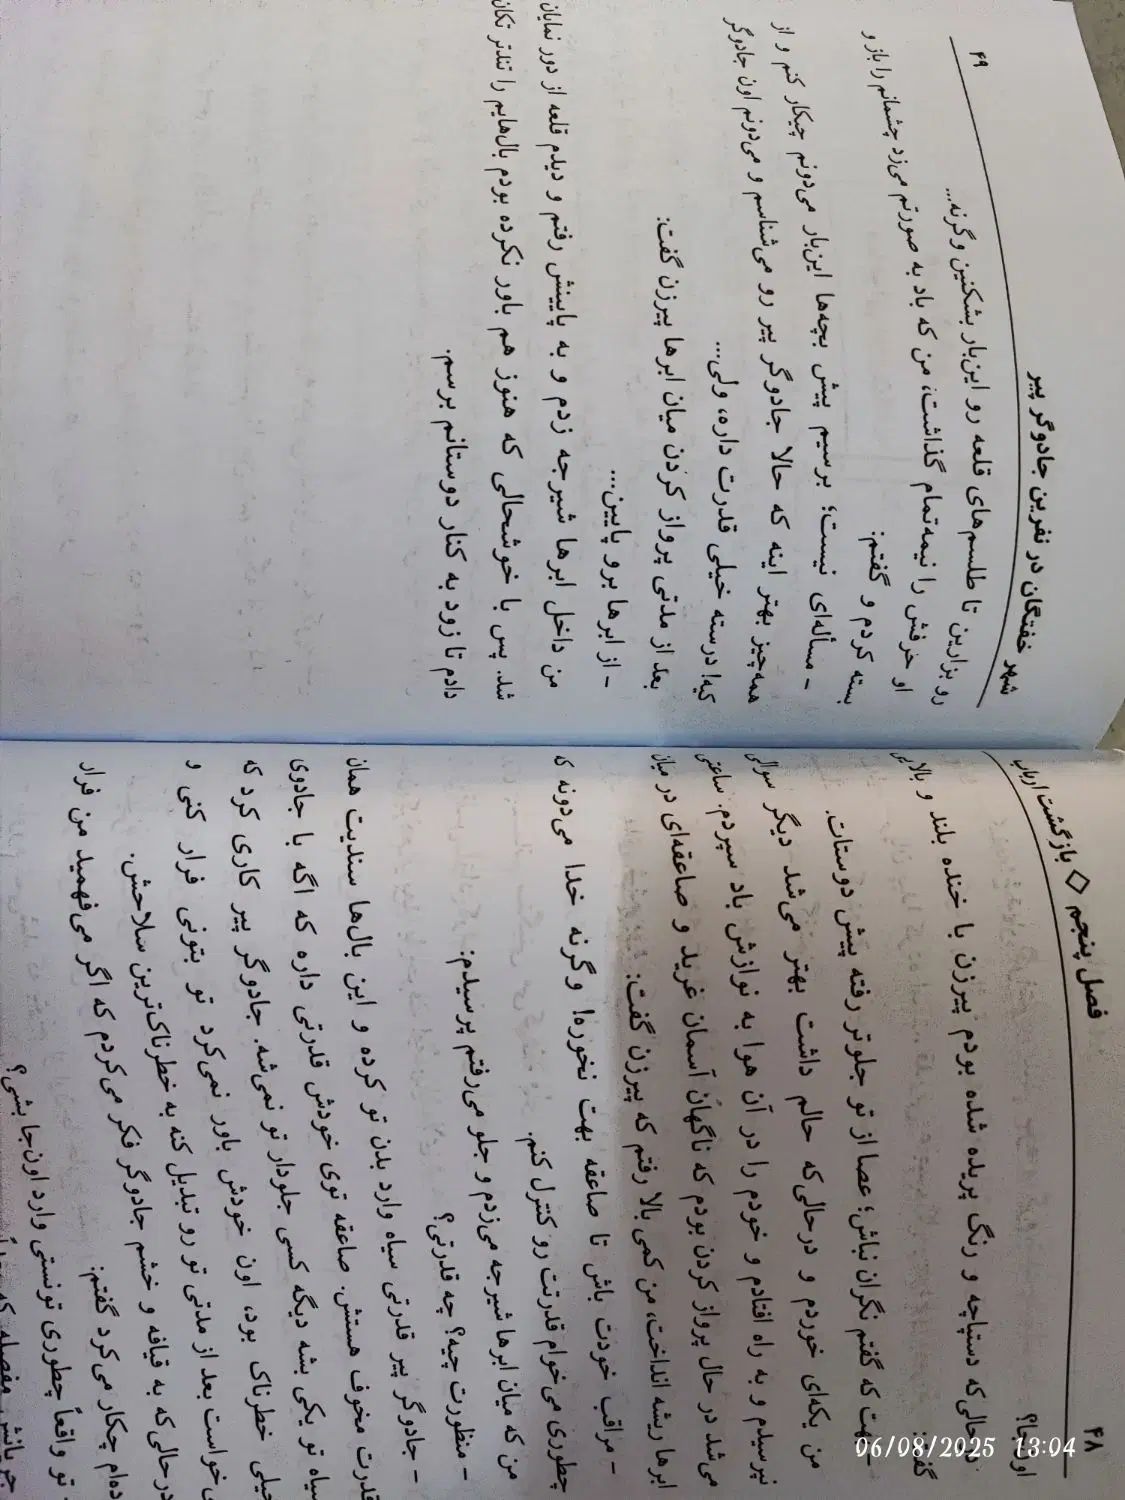 ۴۸
فصل پنجم ◇ بازگشت ارباب
اونجا؟
درحالی‌که دستپاچه و رنگ پریده شده بودم پیرزن با خنده بلند و بالایی
گفت:
بهت که گفتم نگران نباش؛ عصا از تو جلوتر رفته پیش دوستات.
من یکه‌ای خوردم و درحالی‌که حالم داشت بهتر می‌شد دیگر سوالی
نپرسیدم و به راه افتادم و خودم را در آن هوا به نوازش باد سپردم. ساعتی
می‌شد در حال پرواز کردن بودم که ناگهان آسمان غرید و صاعقه‌ای در میان
ابرها ریشه انداخت، من کمی بالا رفتم که پیرزن گفت:
- مراقب خودت باش تا صاعقه بهت نخوره! وگرنه خدا می‌دونه
چطوری می‌خوام قدرتت رو کنترل کنم.
من که میان ابرها شیرجه می‌زدم و جلو می‌رفتم پرسیدم:
- منظورت چیه؟ چه قدرتی؟
- جادوگر پیر قدرتی سیاه وارد بدن تو کرده و این بال‌ها سندیت همان
قدرت مخوف هستش. صاعقه توی خودش قدرتی داره که اگه با جادوی
سیاه تو یکی بشه دیگه کسی جلودار تو نمی‌شه. جادوگر پیر کاری کرد که
خیلی خطرناک بود، اون خودش باور نمی‌کرد تو بتونی فرار کنی و
خواست بعد از مدتی تو رو تبدیل کنه به خطرناک‌ترین سلاحش.
درحالی‌که به قیافه و خشم جادوگر فکر می‌کردم که اگر می‌فهمید من فرار
چکار می‌کرد گفتم:
تو واقعاً چطوری تونستی وارد اون‌جا بشی؟
جریانش مفصله که
شهر خفتگان در نفرین جادوگر پیر
۴۹
رو بزارین تا طلسم‌های قلعه رو این‌بار بشکنین وگرنه...
او حرفش را نیمه‌تمام گذاشت، من که باد به صورتم می‌زد چشمانم را باز و
بسته کردم و گفتم:
- مسأله‌ای نیست؛ برسیم پیش بچه‌ها این‌بار می‌دونم چیکار کنم و از
همه‌چیز بهتر اینه که حالا جادوگر پیر رو می‌شناسم و می‌دونم اون جادوگر
کیه! درسته خیلی قدرت داره، ولی...
بعد از مدتی پرواز کردن میان ابرها پیرزن گفت:
- از ابرها برو پایین...
من داخل ابرها شیرجه زدم و به پایینش رفتم و دیدم قلعه از دور نمایان
شد. پس با خوشحالی که هنوز هم باور نکرده بودم بال‌هایم را تندتر تکان
دادم تا زود به کنار دوستانم برسم.
06/08/2025 13:04